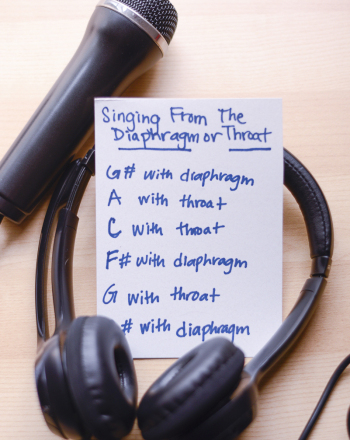 Singing From The
Diaphragm or Throat
G# with diaphragm
A with throat
C with throat
F# with diaphragm
G with throat
# with diaphragm